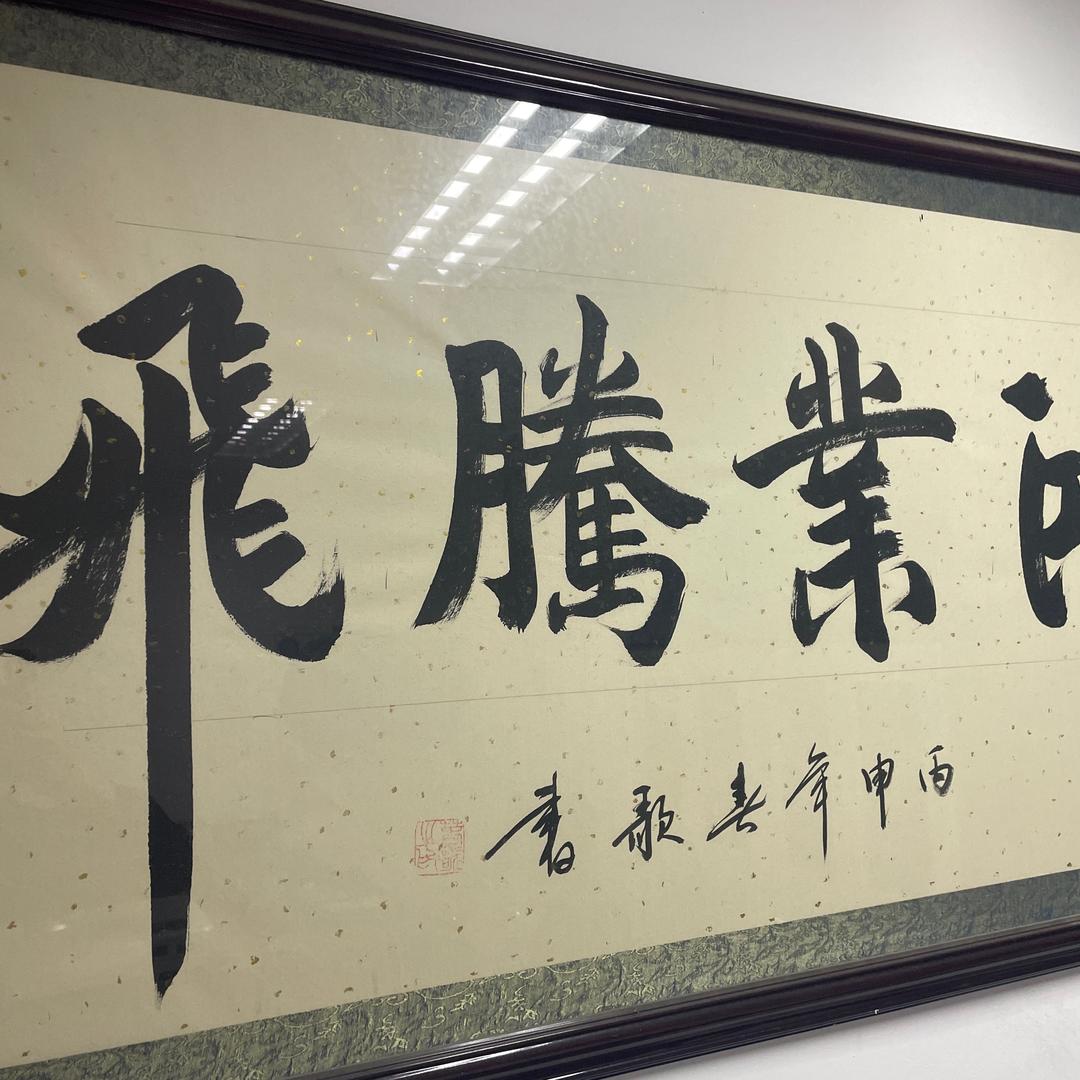 業騰飛
丙申年春歌書